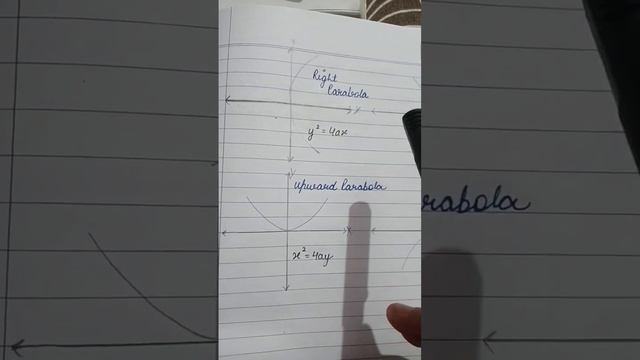 Right
Parabola
y² = 4ax
upward Parabola
x² = 4ay
rabola